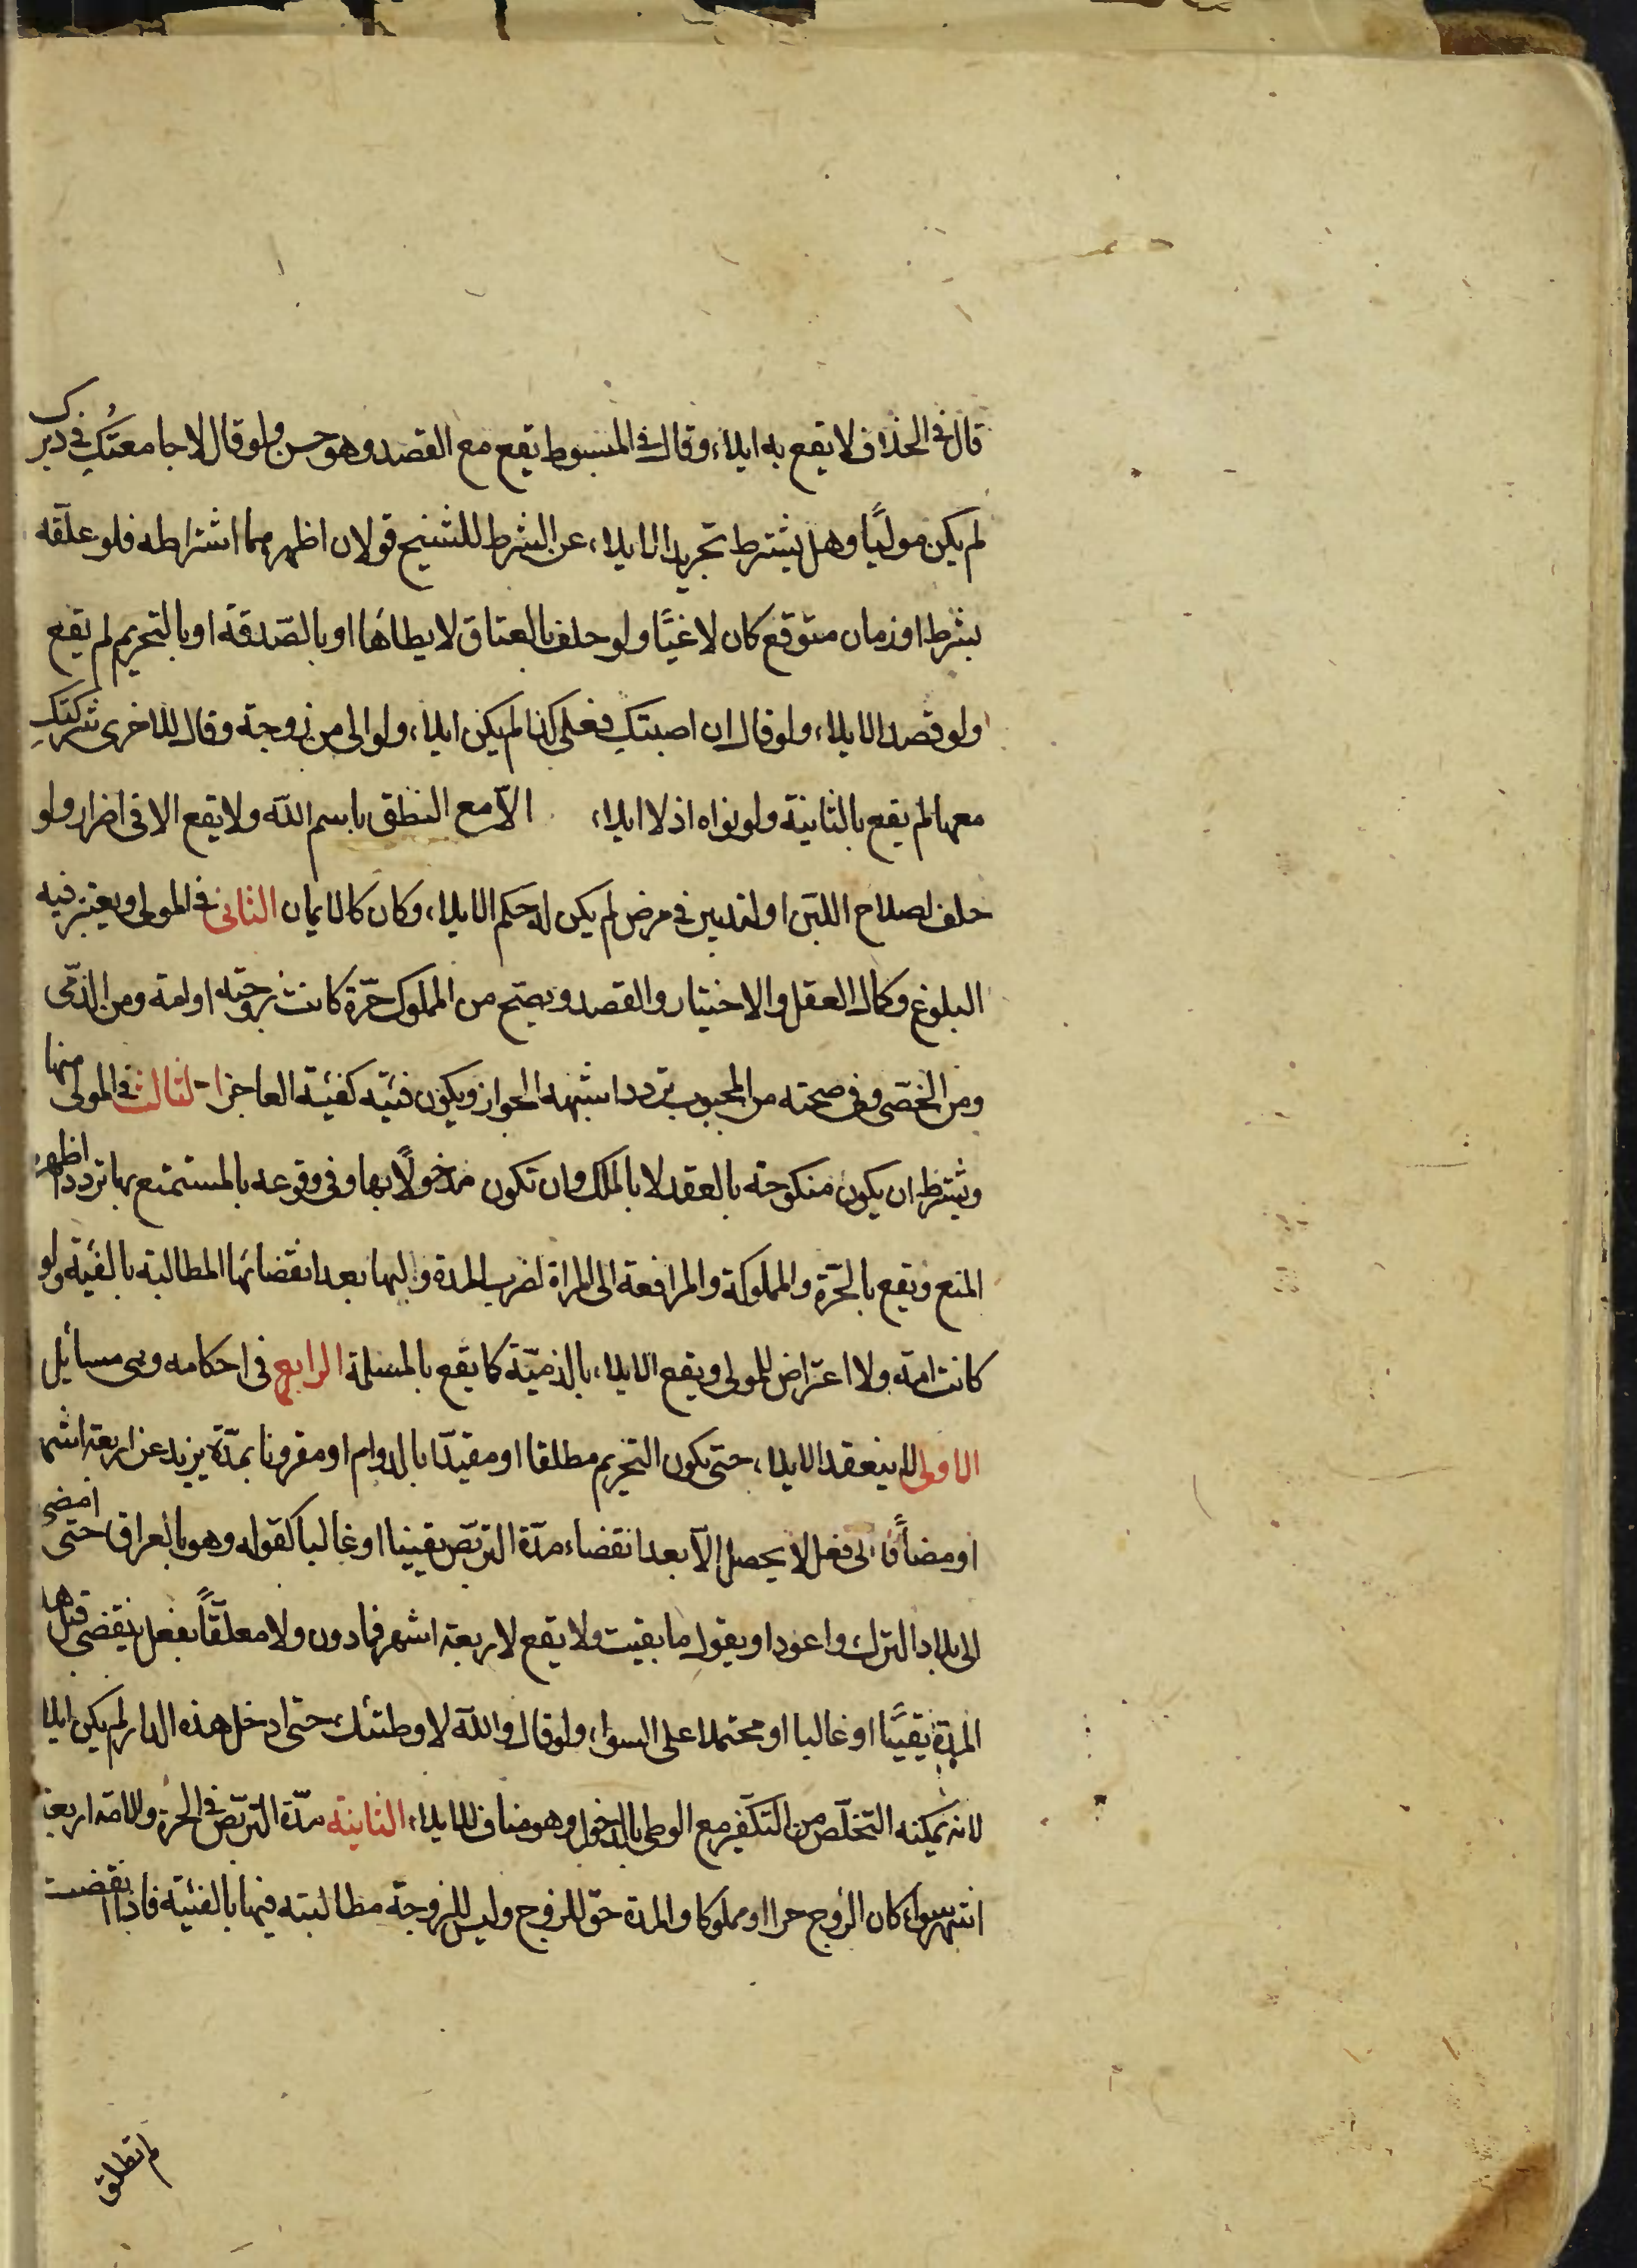 قال في الخلاف لا يقع به ايلاء وقال في المبسوط يقع مع القصد وهو حسن ولو قال لا جامعتك في دبرك
لم يكن موليًا وهل يشترط تجريد الايلاء عن الشرط للشيخ قولان اظهرهما اشتراطه فلو علّقه
بشرط او زمان متوقع كان لاغيًا ولو حلف بالعتاق لا يطاها او بالصّدقة او بالتحريم لم يقع
ولو قصد الايلاء ولو قال ان اصبتكِ فعلي كذا لم يكن ايلاء ولو الى من زوجة وقال للاخرى شركتكِ
معها لم يقع بالثانية ولو نواه اذ لا ايلاء الّا مع النطق باسم اللّه ولا يقع الا في اضرار ولو
حلف لصلاح اللبن او لتدبير في مرض لم يكن له حكم الايلاء وكان كالايمان الثاني في المولي ويعتبر فيه
البلوغ وكمال العقل والاختيار والقصد ويصّح من المملوك حّرة كانت زوجته او امة ومن الذمّى
ومن الخصّى وفي صحته من المجبوب تردد اشبهه الجواز ويكون فئته كفئة العاجز الثالث في المولى منها
ويشترط ان يكون منكوحة بالعقد لا بالملك وان تكون مدخولًا بها وفي وقوعه بالمستمتع بها تردد اظهره
المنع ويقع بالحّرة والمملوكة والمرافعة الى المراة لضرب المدة واليها بعد انقضائها المطالبة بالفئة ولو
كانت امة ولا اعتراض للمولى ويقع الايلاء بالذميّة كما يقع بالمسلمة الرابع في احكامه وهي مسائل
الاولى لا ينعقد الايلاء حتى يكون التحريم مطلقا او مقيدًا بالدوام او مقرونا بمدّة يزيد عن اربعة اشهر
او مضافًا الى فعل لا يحصل الّا بعد انقضاء مدّة التربّص يقينا او غالبا كقوله وهو بالعراق حتى امضى
الى بلاد الترك واعود او يقول ما بقيت ولا يقع لاربعة اشهر فما دون ولا معلّقًا بفعل ينقضى قبل هذه
المدة يقينًا او غالبا او محتملا على السواء ولو قال واللّه لا وطئتك حتى ادخل هذه الدار لم يكن ايلاء
لانه يمكنه التخلّص من التكفير مع الوطى بالدخول وهو مناف للايلاء الثانية مدّة التربّص في الحرة والامة اربعة
اشهر سواء كان الزوج حرا او مملوكا والمدة حقّ للزوج وليس للزوجة مطالبته فيها بالفئة فاذا انقضت
لم تطلق